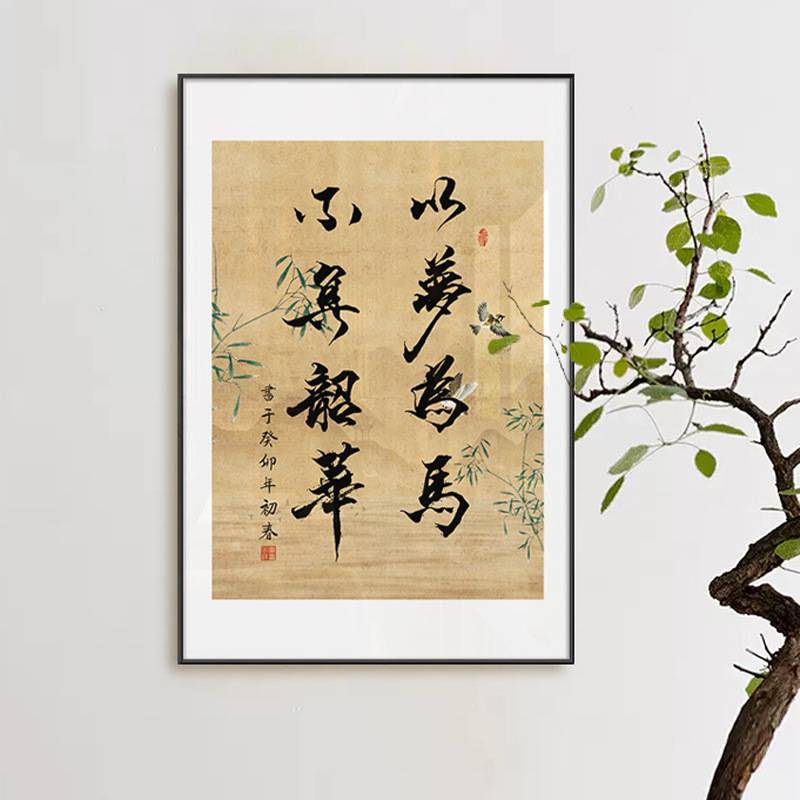 以夢為馬
不負韶華
書于癸卯年初春